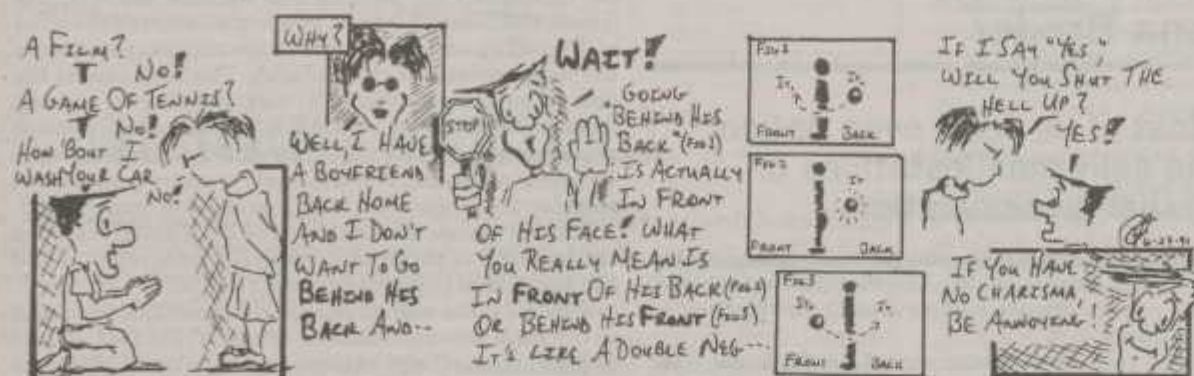 A FILM?
NO!
A GAME OF TENNIS?
NO!
HOW 'BOUT I
WASH YOUR CAR
NO!
WHY?
WELL, I HAVE
A BOYFRIEND
BACK HOME
AND I DON'T
WANT TO GO
BEHIND HIS
BACK AND--
STOP
WAIT!
GOING
"BEHIND HIS
BACK" (FIG 1)
IS ACTUALLY
IN FRONT
OF HIS FACE! WHAT
YOU REALLY MEAN IS
IN FRONT OF HIS BACK (FIG 2)
OR BEHIND HIS FRONT (FIG 3)
IT'S LIKE A DOUBLE NEG---
FIG 1
IT, IT
FRONT BACK
FIG 2
IT
FRONT BACK
FIG 3
IT, IT
FRONT BACK
IF I SAY "YES,"
WILL YOU SHUT THE
HELL UP?
YES!
IF YOU HAVE
NO CHARISMA,
BE ANNOYING!